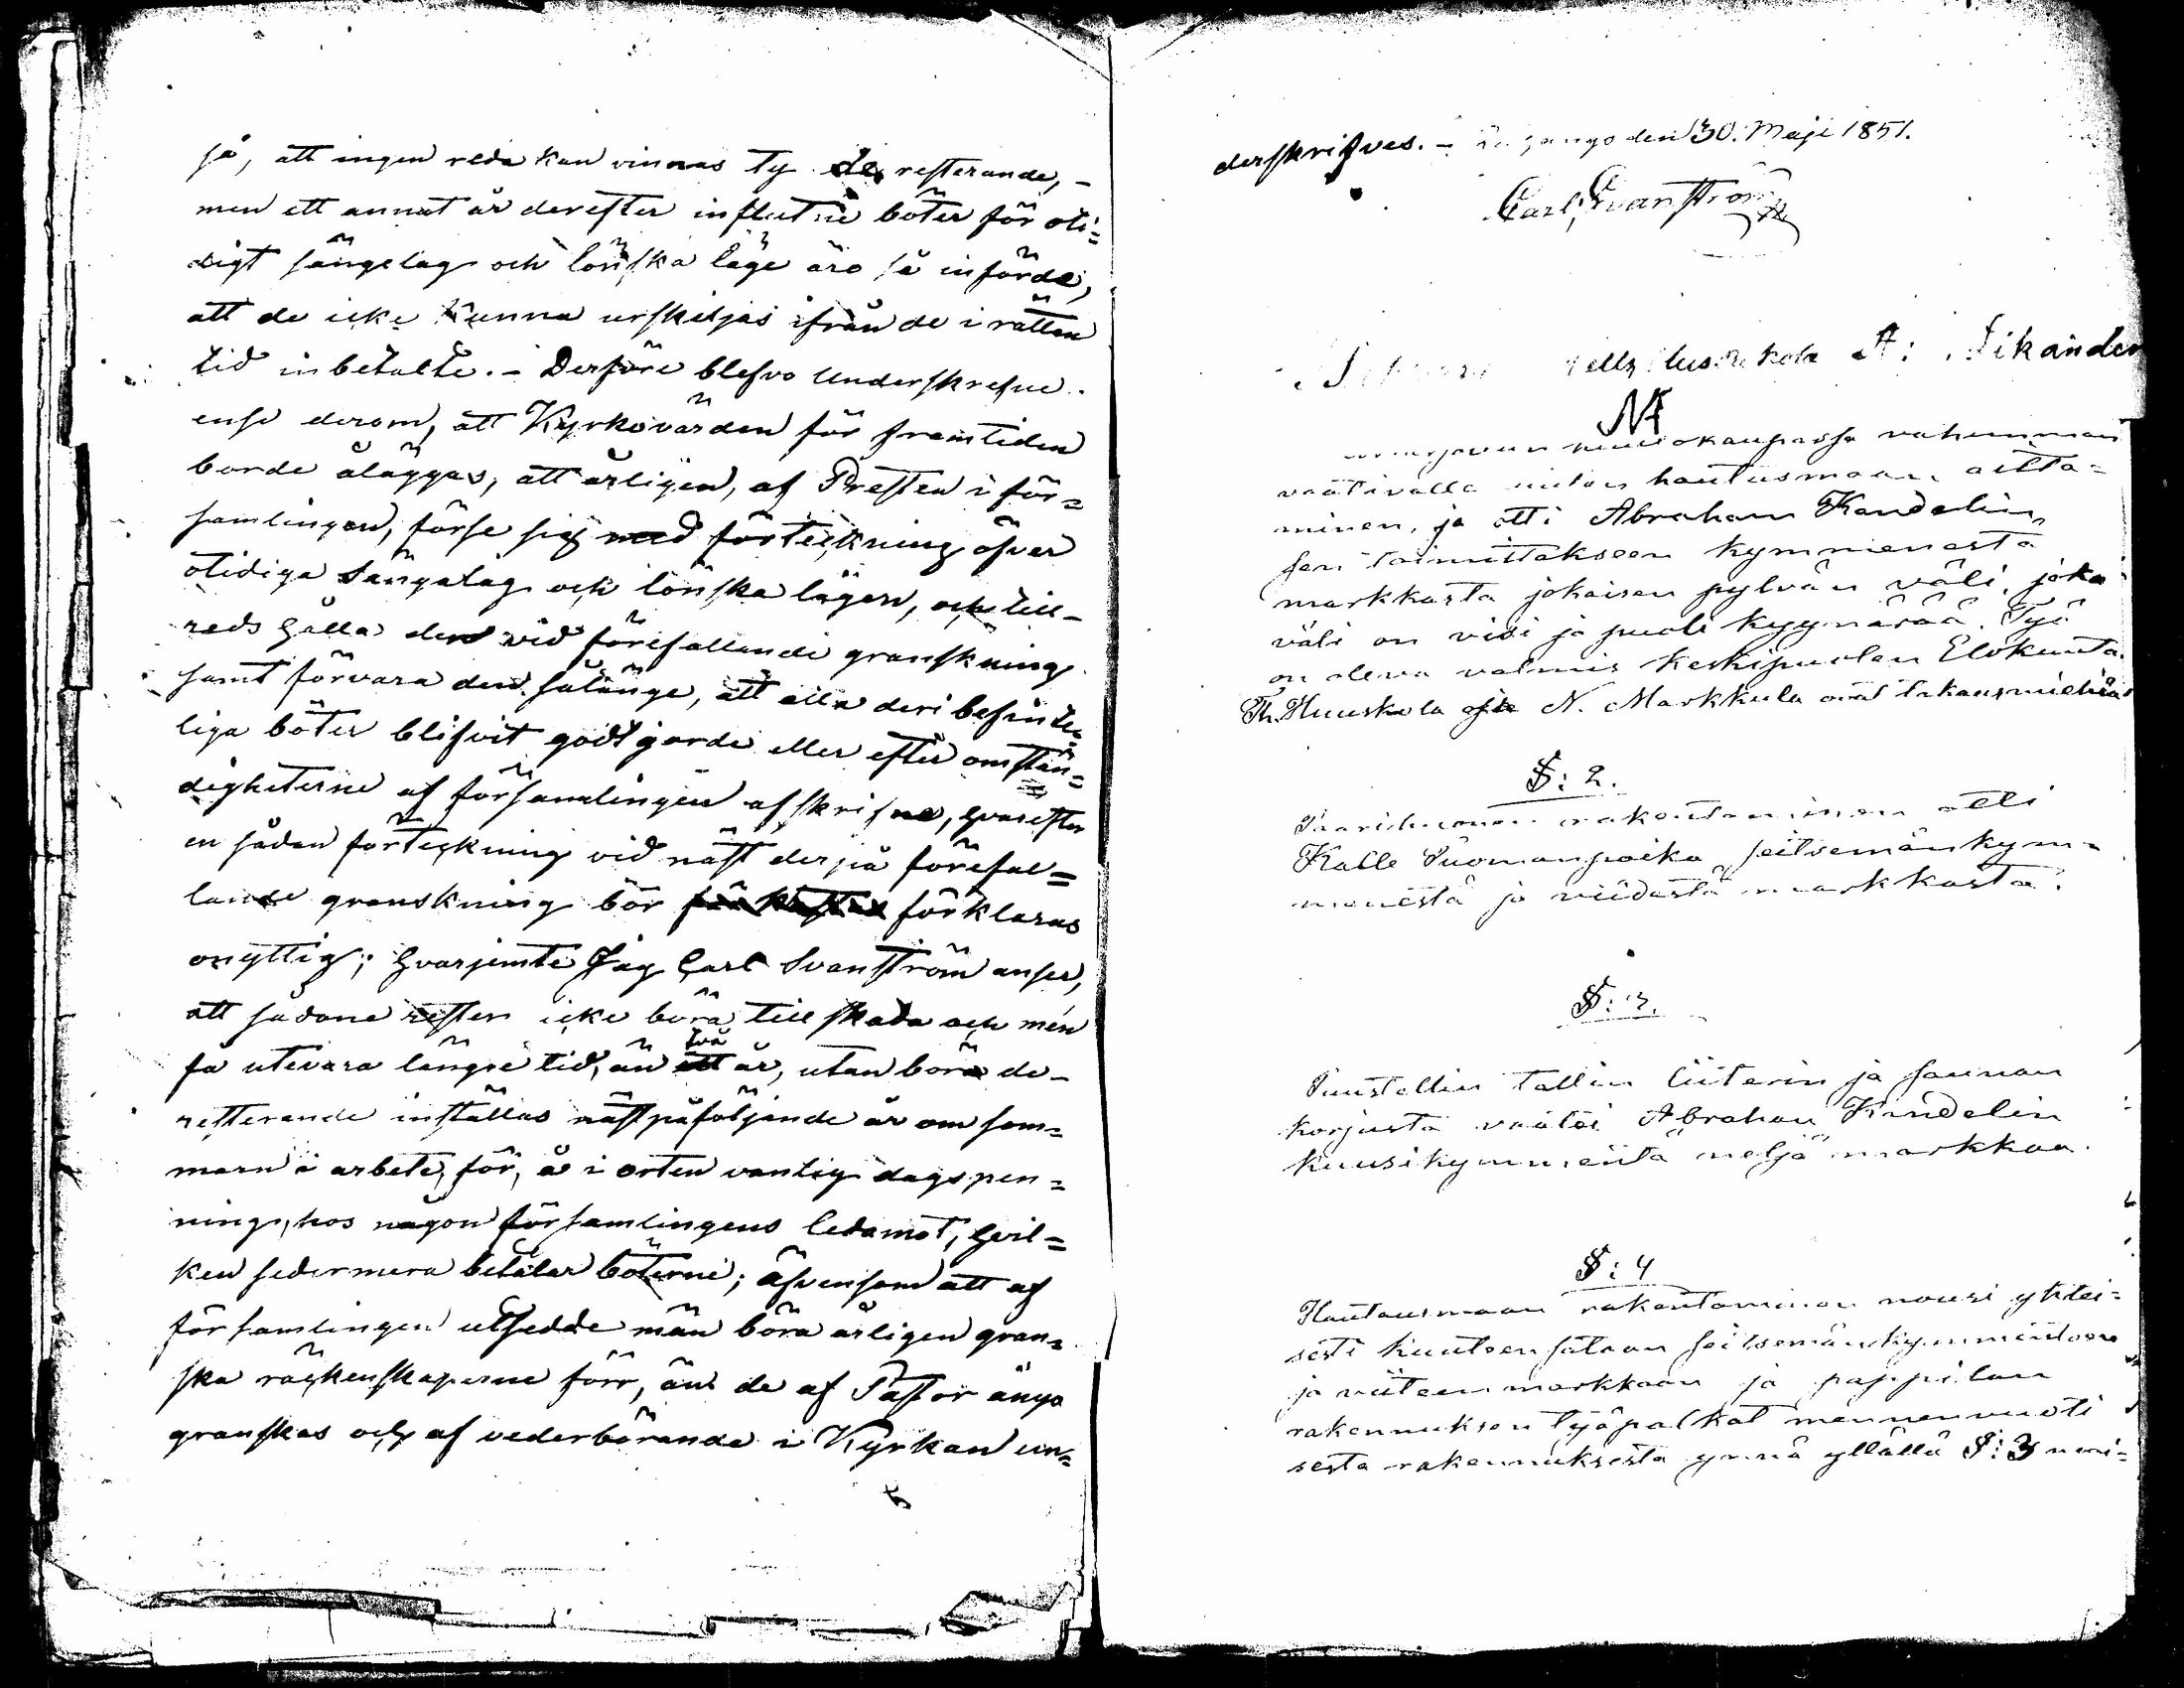 så, att ingen reda kan vinnas ty de resterande, -
men ett annat år derefter influtne böter för oti=
digt sängelag och lönska läge äro så införde,
att de icke kunna urskiljas ifrån de i rättan
tid inbetalte. - Derföre blefvo Underskrefne
ense derom, att Kyrkovärden för framtiden
borde åläggas, att årligen, af Presten i för=
samlingen, förse sig med förteckning öfver
otidiga Sängalag och lönska lägen, och till-
reds hålla den vid förefallande granskning
samt förvara den sålänge, att alla deri befinte=
liga böter blifvit godtgjorde eller efter omstän=
digheterne af församlingen afskrifne, hvarefter
en sådan förteckning vid näst derpå förefal=
lande granskning bör förklaras
onyttig; hvarjemte Jag Carl Svanström anser,
att sådane rester icke böra till skada och mén
få utevara längre tid, än två ett år, utan böra de-
resterande inställas nästpåföljande år om som=
marn i arbete, för, å i orten vanlig dagspen=
ning, hos någon församlingens ledamot, hvil=
ken sedermera betalar böterne; äfvensom att af
församlingen utsedde män böra årligen gran=
ska räckenskaperne förr, än de af Pastor ånyo
granskas och af vederbörande i Kyrkan un=
derskrifves. - den 30. Maji 1851.
Carl Svanström
A: Sikander
huutokaupassa vähimmän
vaativalle hautusmaan aitta=
minen, ja otti Abraham Kandelin
sen toimittakseen kymmenestä
markkasta jokaisen pylvän väli, joka
väli on viisi ja puoli kyynärää. Työ
on oleva valmis keskipuolen Elokuuta.
Th. Huuskola ja N. Markkula ovat takausmiehiä
§: 2.
rakentaminen otti
Kalle Tuomanpoika seitsemänkym=
menestä ja viidestä markkasta.
§: 3.
Puustellin tallin liiterin ja saunan
korjusta vaatei Abraham Kandelin
kuusikymmentä neljä markkaa.
§: 4
Hautausmaan rakentaminen nousi yhtei=
sesti kuuteensataan seitsemänkymmentoon
ja viiteenmarkkaan ja pappilan
rakennuksen työpalkat mennenvuoti
sesta rakennuksesta ynnä yllällä §: 3 mai=